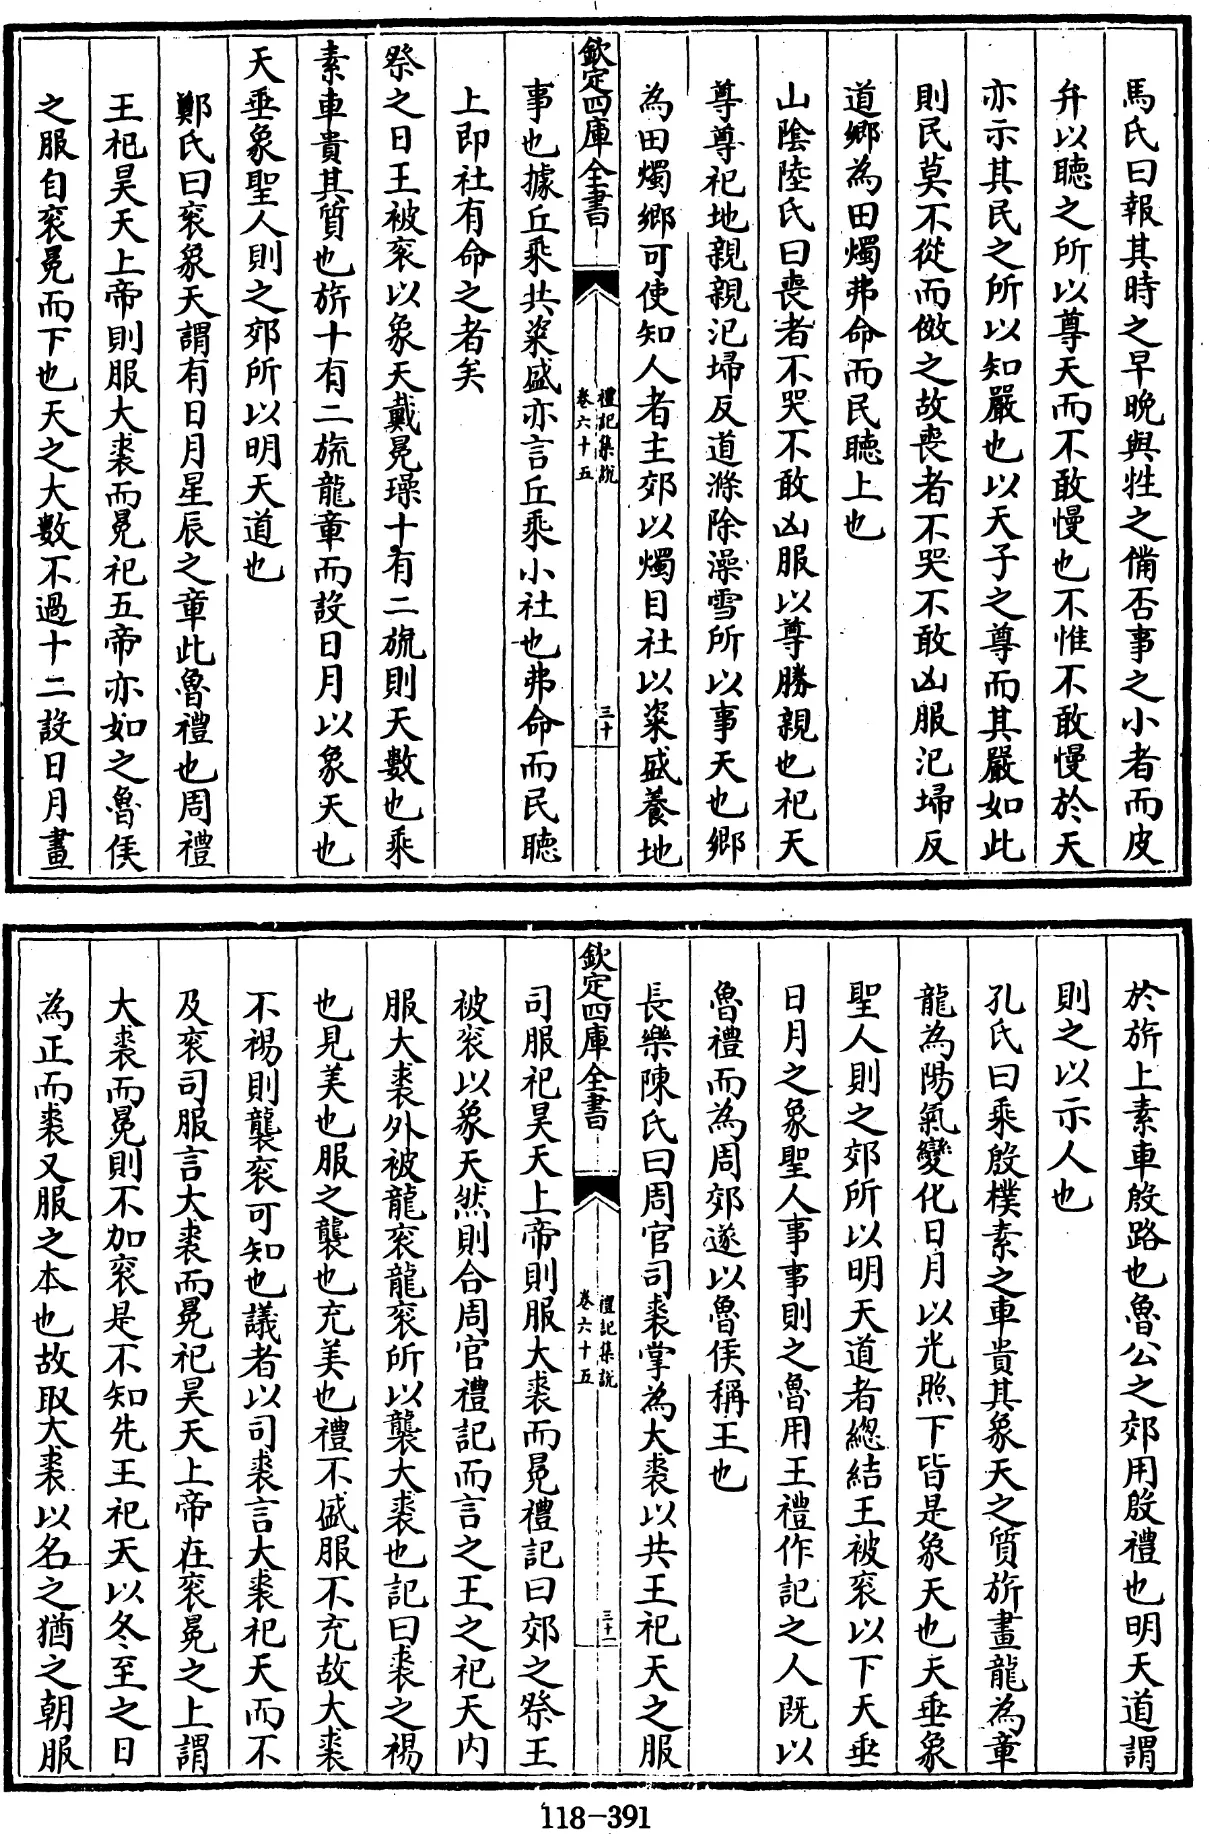 馬氏曰報其時之早晚與牲之備否事之小者而皮
弁以聽之所以尊天而不敢慢也不惟不敢慢於天
亦示其民之所以知嚴也以天子之尊而其嚴如此
則民莫不從而傚之故喪者不哭不敢凶服氾埽反
道鄉為田燭弗命而民聽上也
山陰陸氏曰喪者不哭不敢凶服以尊勝親也祀天
尊尊祀地親親氾埽反道滌除澡雪所以事天也鄉
為田燭鄉可使知人者主郊以燭目社以粢盛養地
欽定四庫全書
禮記集說
卷六十五
三十
事也據丘乘共粢盛亦言丘乘小社也弗命而民聽
上即社有命之者矣
祭之日王被衮以象天戴冕璪十有二旒則天數也乘
素車貴其質也旂十有二旒龍章而設日月以象天也
天垂象聖人則之郊所以明天道也
鄭氏曰衮象天謂有日月星辰之章此魯禮也周禮
王祀昊天上帝則服大裘而冕祀五帝亦如之魯侯
之服自衮冕而下也天之大數不過十二設日月畫
於旂上素車殷路也魯公之郊用殷禮也明天道謂
則之以示人也
孔氏曰乘殷樸素之車貴其象天之質旂畫龍為章
龍為陽氣變化日月以光照下皆是象天也天垂象
聖人則之郊所以明天道者緫結王被衮以下天垂
日月之象聖人事事則之魯用王禮作記之人既以
魯禮而為周郊遂以魯侯稱王也
長樂陳氏曰周官司裘掌為大裘以共王祀天之服
欽定四庫全書
禮記集說
卷六十五
三十一
司服祀昊天上帝則服大裘而冕禮記曰郊之祭王
被衮以象天然則合周官禮記而言之王之祀天內
服大裘外被龍衮龍衮所以襲大裘也記曰裘之裼
也見美也服之襲也充美也禮不盛服不充故大裘
不裼則襲衮可知也議者以司裘言大裘祀天而不
及衮司服言大裘而冕祀昊天上帝在衮冕之上謂
大裘而冕則不加衮是不知先王祀天以冬至之日
為正而裘又服之本也故取大裘以名之猶之朝服
118-391